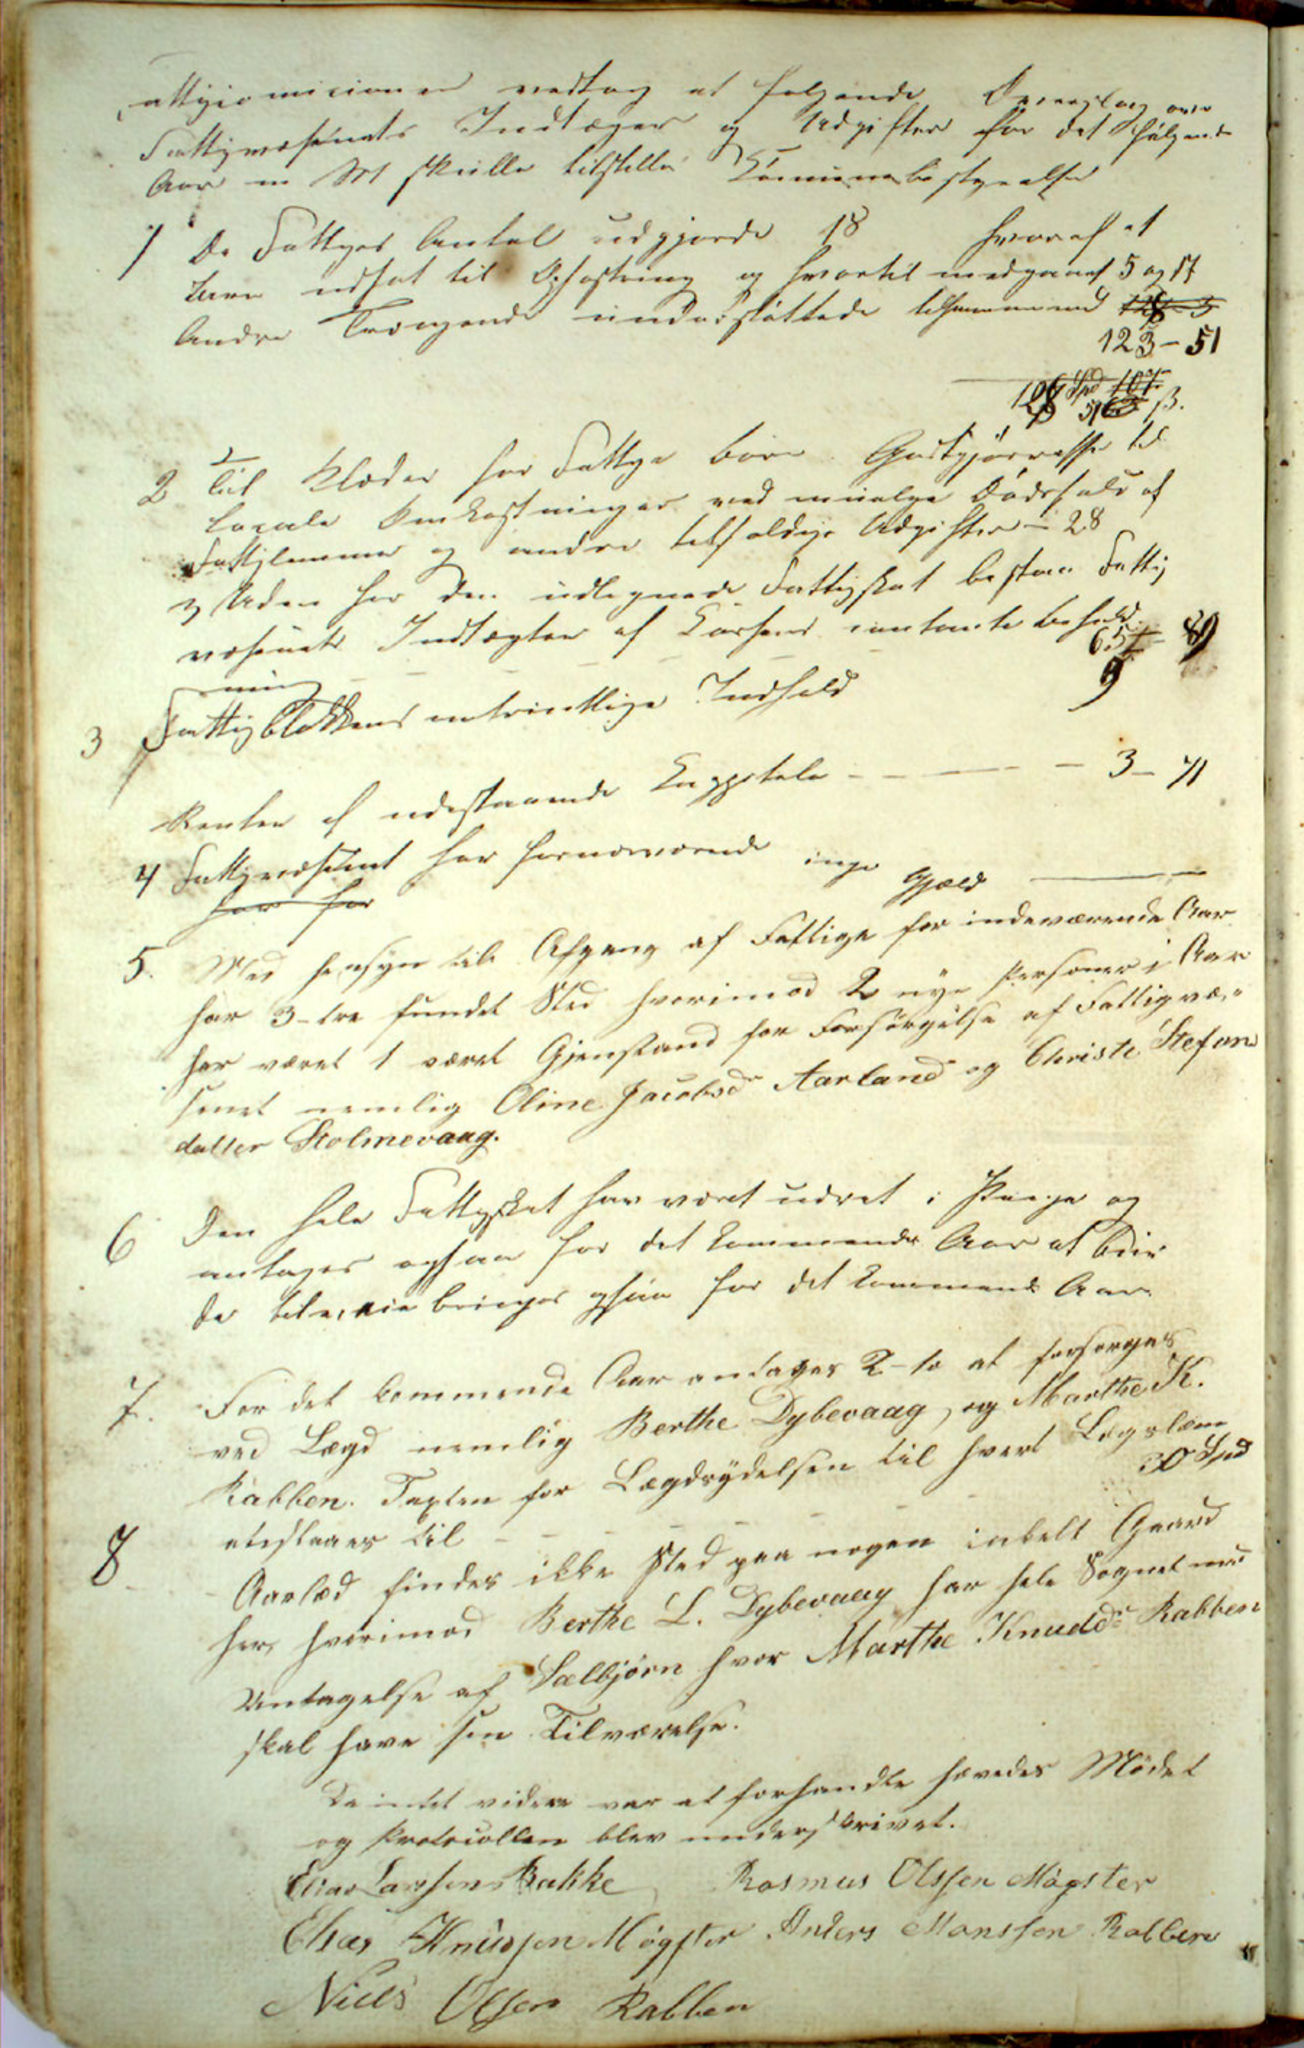 vedtog at følgende Overslag over
Fattigvæsenets Indtægter og Udgifter for det følgende
Aar skulle tilstilles Communebestyrelsen
1 De Fattiges Antal udgjorde 18 hvoraf et
Barn udsat til Opfostring og hvortil medgaaet 5 og 17
Andre Trængende understøttede tilsammen med
123 - 51
128 Spd 51 ß.
2 Til Klæder for Fattige børn. Godtgjørrelse til
locale Omkostninger ved muelge Dødsfald af
Fattiglemmer og andre tilfoldige Udgifter - 28
3 Uden for den udlignede Fattigskat bestaar Fattig
væsenets Indtægter af Cassens contante behold
ning 65 89
3 Fattigblokkens omtrintlige Indhold 9
Renter af udestaaende Cappitaler - - - - 3 - 71
4 Fattigvæsenet har fornærværende inge Gjæld
har for
5. Med hensyn til Afgang af Fattige for indeværende Aar
har 3-tre fundet Sted hvorimod 2 nye personer i Aar
har været 1 været Gjenstand for Forsørgelse af Fattigvæ-
senet nemlig Oline Jacobsdr Aarland og Christi Stefans
datter Stolmevaag.
6 Den hele Fattigskat har været udret i Penge og
antages ogsaa for det kommende Aar at blive
bringes ogsaa for det kommende Aar.
7. For det kommende Aar antages 2-to at forsørges
ved Lægd nemlig Berthe Dybevaag, og Marthe K.
Rabben. Taxten for Lægdsydelsen til hvert Lægslem
ansslaaes til - - - - - 30 Spd
8 Aarlæd findes ikke Sted paa nogen enkelt Gaard
her, hvorimod Berthe L. Dybevaag har hele Sognet med
Untagelse af Selbjørn hvor Marthe Knudsdr Rabben
skal have sin Tilværelse.
Da intet videre var at forhandle hævedes Mødet
og Protocollen blev underskrivet.
Elias Larssen Bakke Rasmus Olssen Møgster
Elias Knudsen Møgster Anders Monssen Rabben
Niels Olsen Rabben